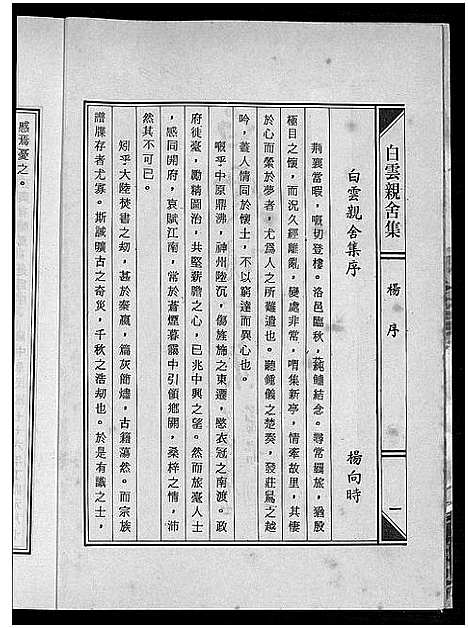 白雲親舍集
楊序
一
白雲親舍集序
楊向時
荆襄當暇，嘅切登樓。洛邑臨秋，蒓鱸結念。尋常羈旅，猶殷
極目之懷，而況久經離亂，變處非常，喟集新亭，情牽故里，其悽
於心而縈於夢者，尤爲人之所難遣也。聽鍾儀之楚奏，發莊舄之越
吟，蓋人情同於懷土，不以窮達而異心也。
嗟乎中原鼎沸，神州陸沉，傷旌旆之東遷，愍衣冠之南渡。政
府徙臺，勵精圖治，共堅薪膽之心，已兆中興之望。然而旅臺人士
，感同開府，哀賦江南，常於蒼煙暮靄中引領鄉關，桑梓之情，沛
然其不可已。
矧乎大陸焚書之劫，甚於秦嬴，篇灰篩燼，古籍蕩然。而宗族
譜牒存者尤寡。斯誠曠古之奇災，千秋之浩劫也。於是有識之士，
感焉憂之。